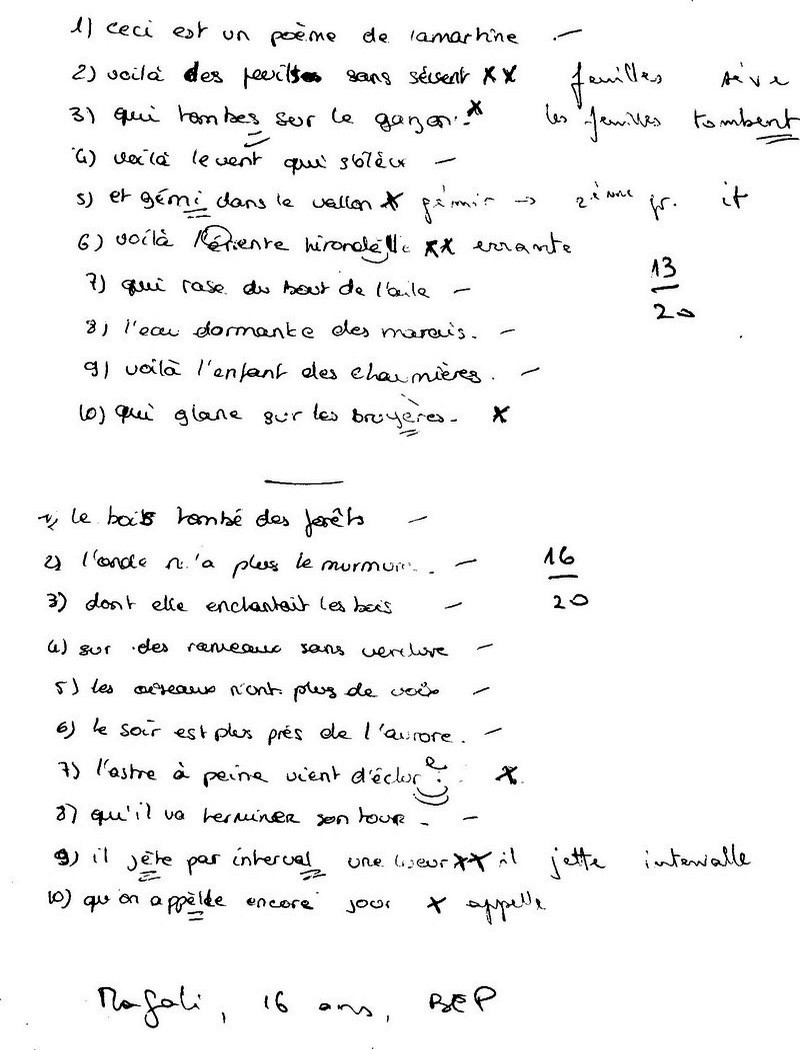 1) ceci est un poème de lamartine . —
2) voilà des feuilles sans sèvent xx feuilles sève
3) qui tombes sur le gazon. x les feuilles tombent
4) voilà le vent qui s'élève —
5) et gémi dans le vallon x gémir → 2ième gr. it
6) voilà l'érente hirondèlle xx errante
7) qui rase du bout de l'aile —
13
20
8) l'eau dormante des marais. —
9) voilà l'enfant des chaumières. —
10) qui glane sur les bruyères. x
1) le bois tombé des forêts —
2) l'onde n'a plus le murmure. —
16
20
3) dont elle enchantait les bois —
4) sur des rameaux sans verdure —
5) les oiseaux n'ont plus de voix —
6) le soir est plus près de l'aurore. —
7) l'astre à peine vient d'éclor e . x
8) qu'il va terminer son tour. —
9) il jète par interval une lueur xx il jette intervalle
10) qu'on appèlde encore jour x appelle
Magali, 16 ans, BEP